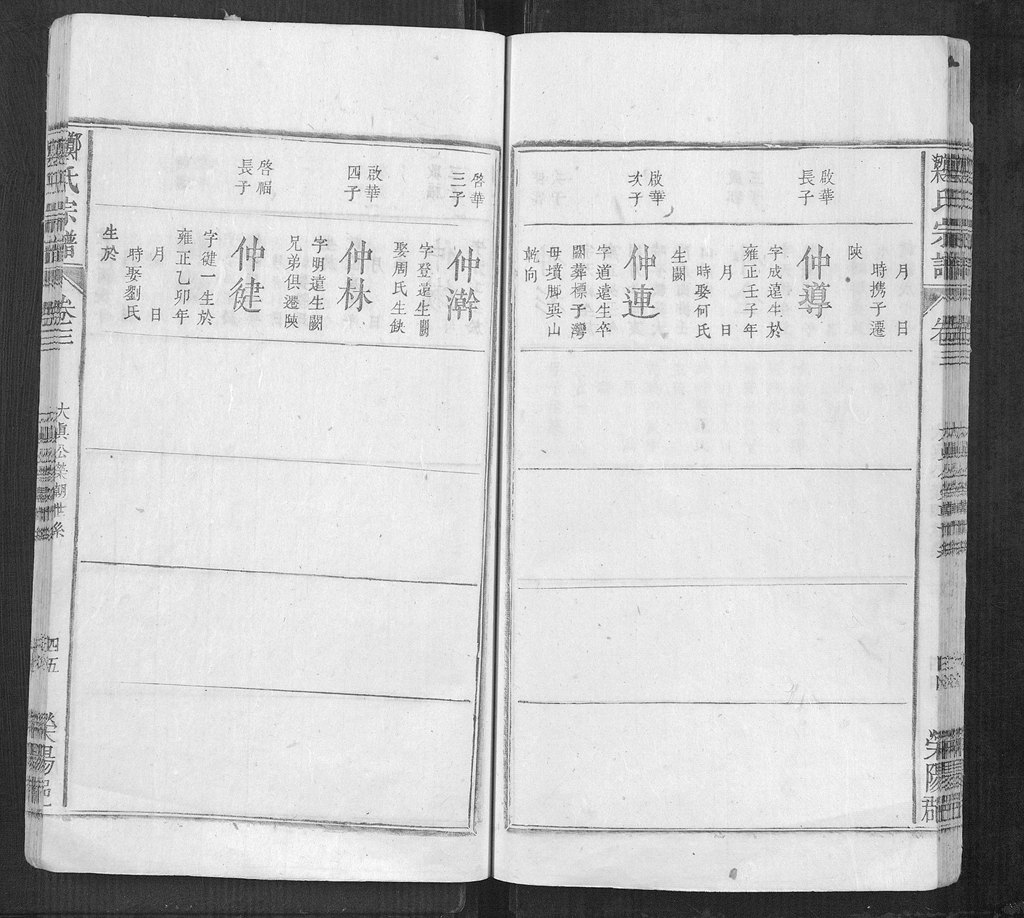 月 日
時携子遷
陝
啟華
長子
仲導
字成遠生於
雍正壬子年
月 日
時娶何氏
生闕
啟華
次子
仲連
字道遠生卒
闕葬標子灣
母墳脚巽山
乾向
啓華
三子
仲澣
字登遠生闕
娶周氏生缺
啟華
四子
仲林
字明遠生闕
兄弟俱遷陝
啓福
長子
仲健
字健一生於
雍正乙卯年
月 日
時娶劉氏
生於
鄭氏宗譜
卷三
大真公榮朝世系
四五
滎陽
氏宗譜
卷三
滎陽郡